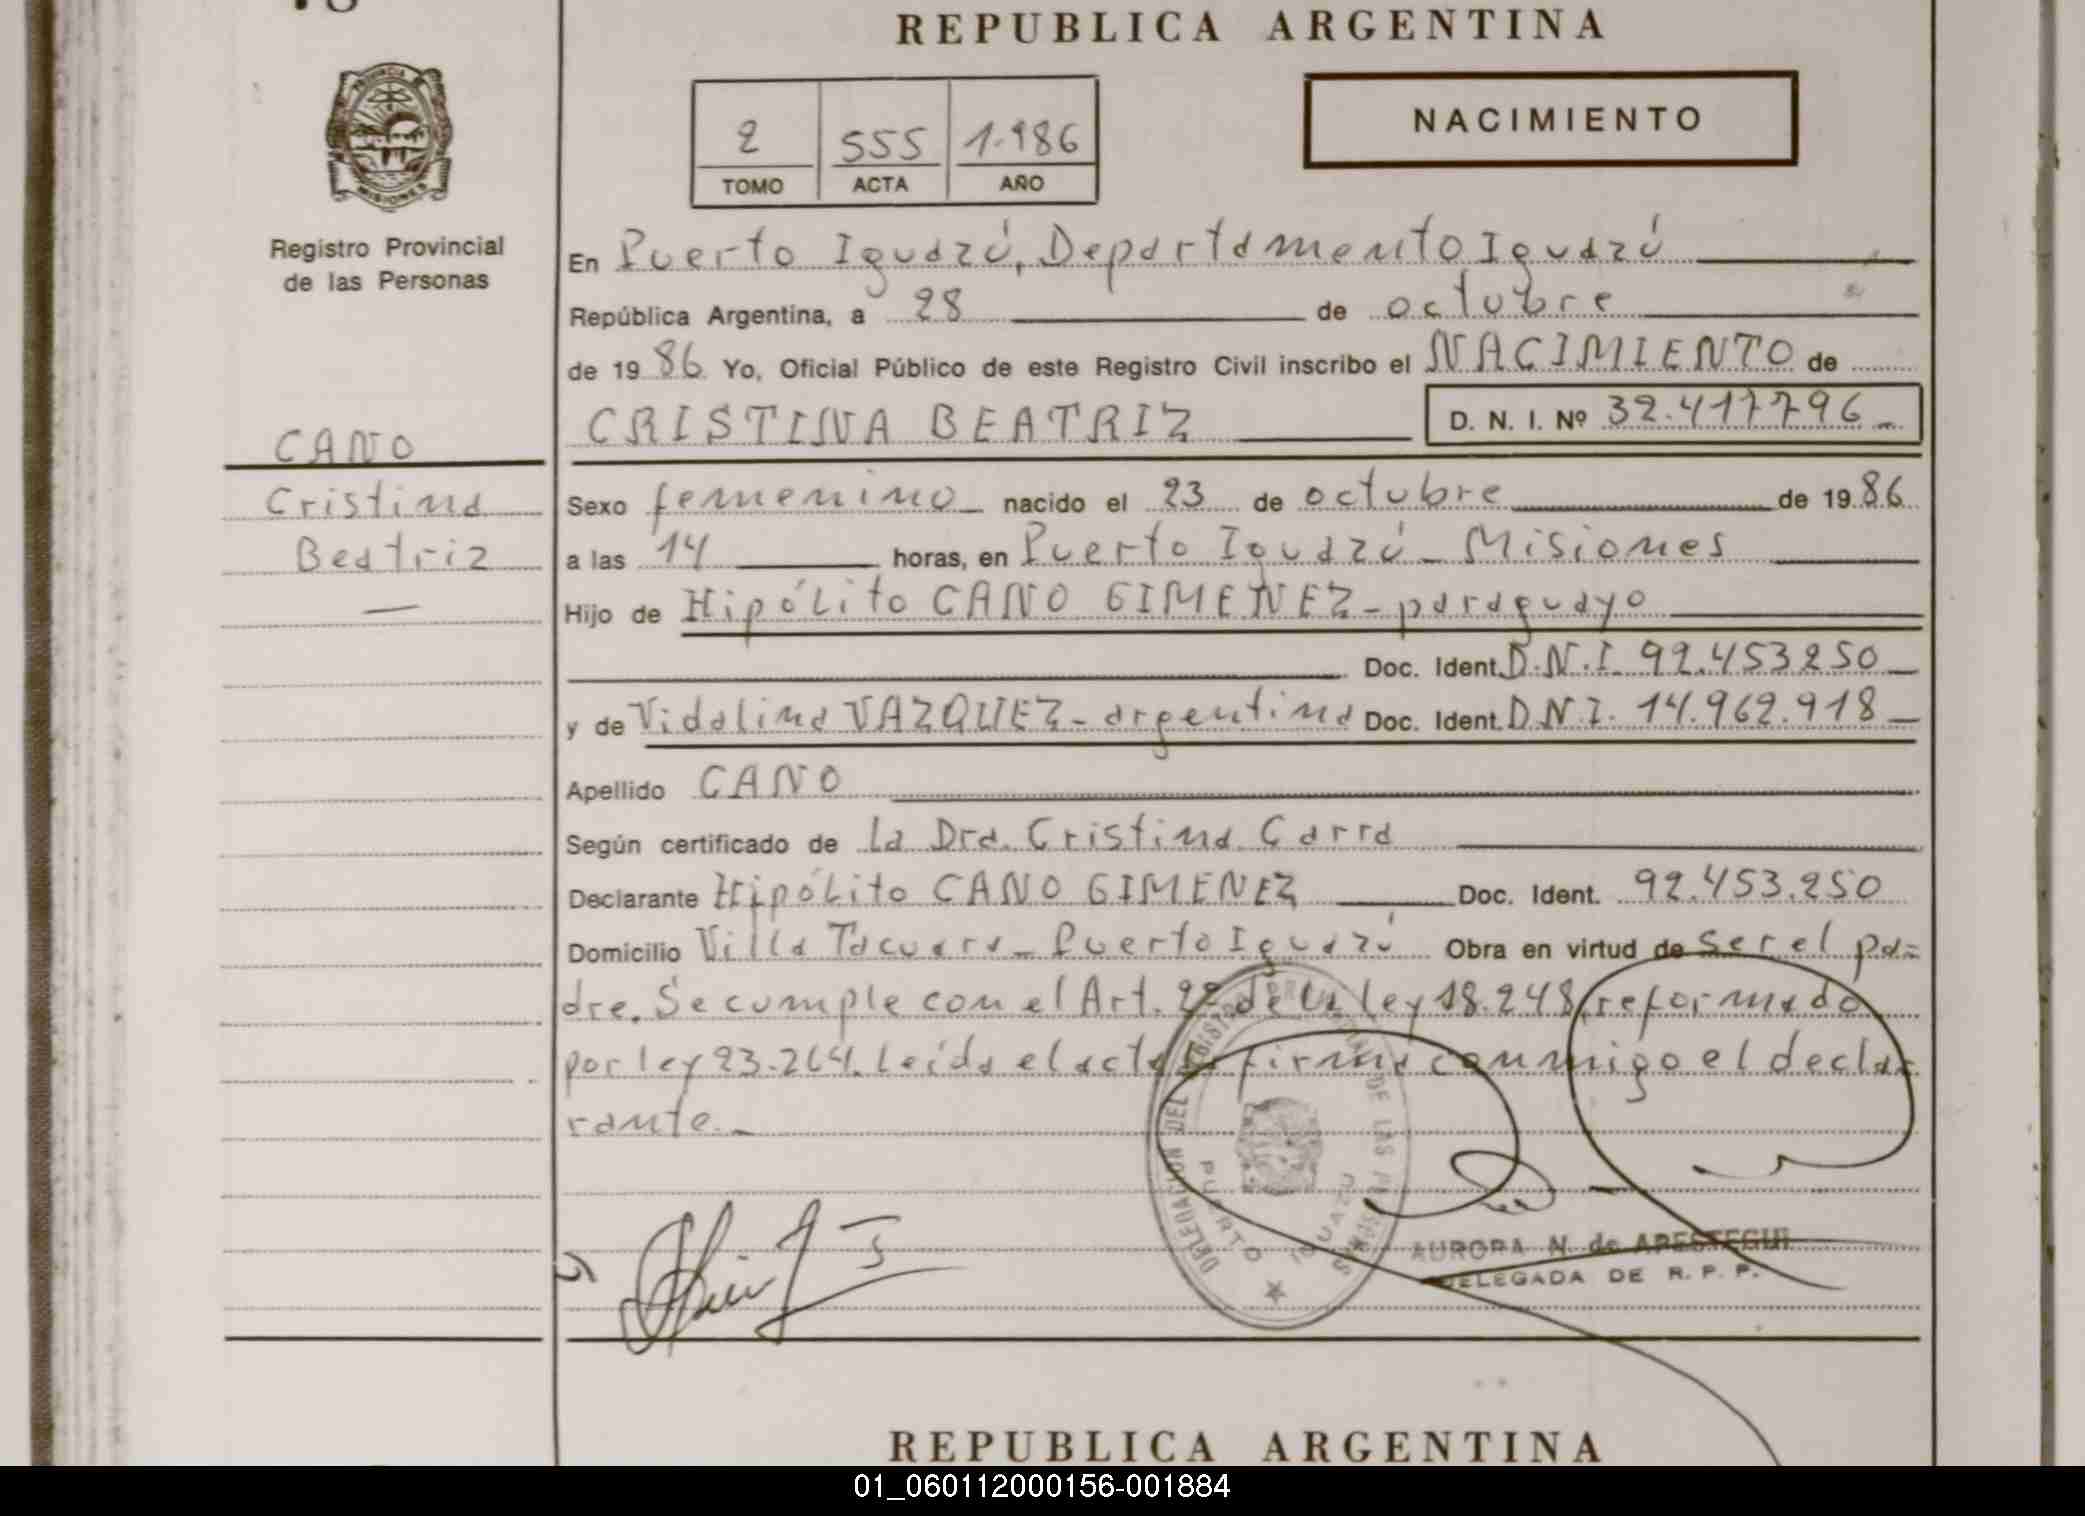 REPUBLICA ARGENTINA
PROVINCIA DE
MISIONES
Registro Provincial
de las Personas
2 555 1.986
TOMO ACTA AÑO
NACIMIENTO
En Puerto Iguazú, Departamento Iguazú
República Argentina, a 28 de octubre
de 19 86 Yo, Oficial Público de este Registro Civil inscribo el NACIMIENTO de
CRISTINA BEATRIZ D. N. I. Nº 32.417796
CANO
Cristina
Beatriz
Sexo femenino nacido el 23 de octubre de 19 86
a las 14 horas, en Puerto Iguazú - Misiones
Hijo de Hipólito CANO GIMENEZ - paraguayo
Doc. Ident. D.N.I. 92.453250
y de Vidalina VAZQUEZ - argentina Doc. Ident. D.N.I. 14.962.918
Apellido CANO
Según certificado de La Dra. Cristina Carra
Declarante Hipólito CANO GIMENEZ Doc. Ident. 92.453.250
Domicilio Villa Tacuara - Puerto Iguazú Obra en virtud de ser el pa-
dre. Se cumple con el Art. 22 de la ley 18.248, reformado
por ley 23.264. Leída el acta firma conmigo el decla-
rante.
DELEGACION DEL REGISTRO PROVINCIAL DE LAS PERSONAS
PUERTO IGUAZU
AURORA N. de APESTEGUI
DELEGADA DE R. P. P.
REPUBLICA ARGENTINA
01_060112000156-001884